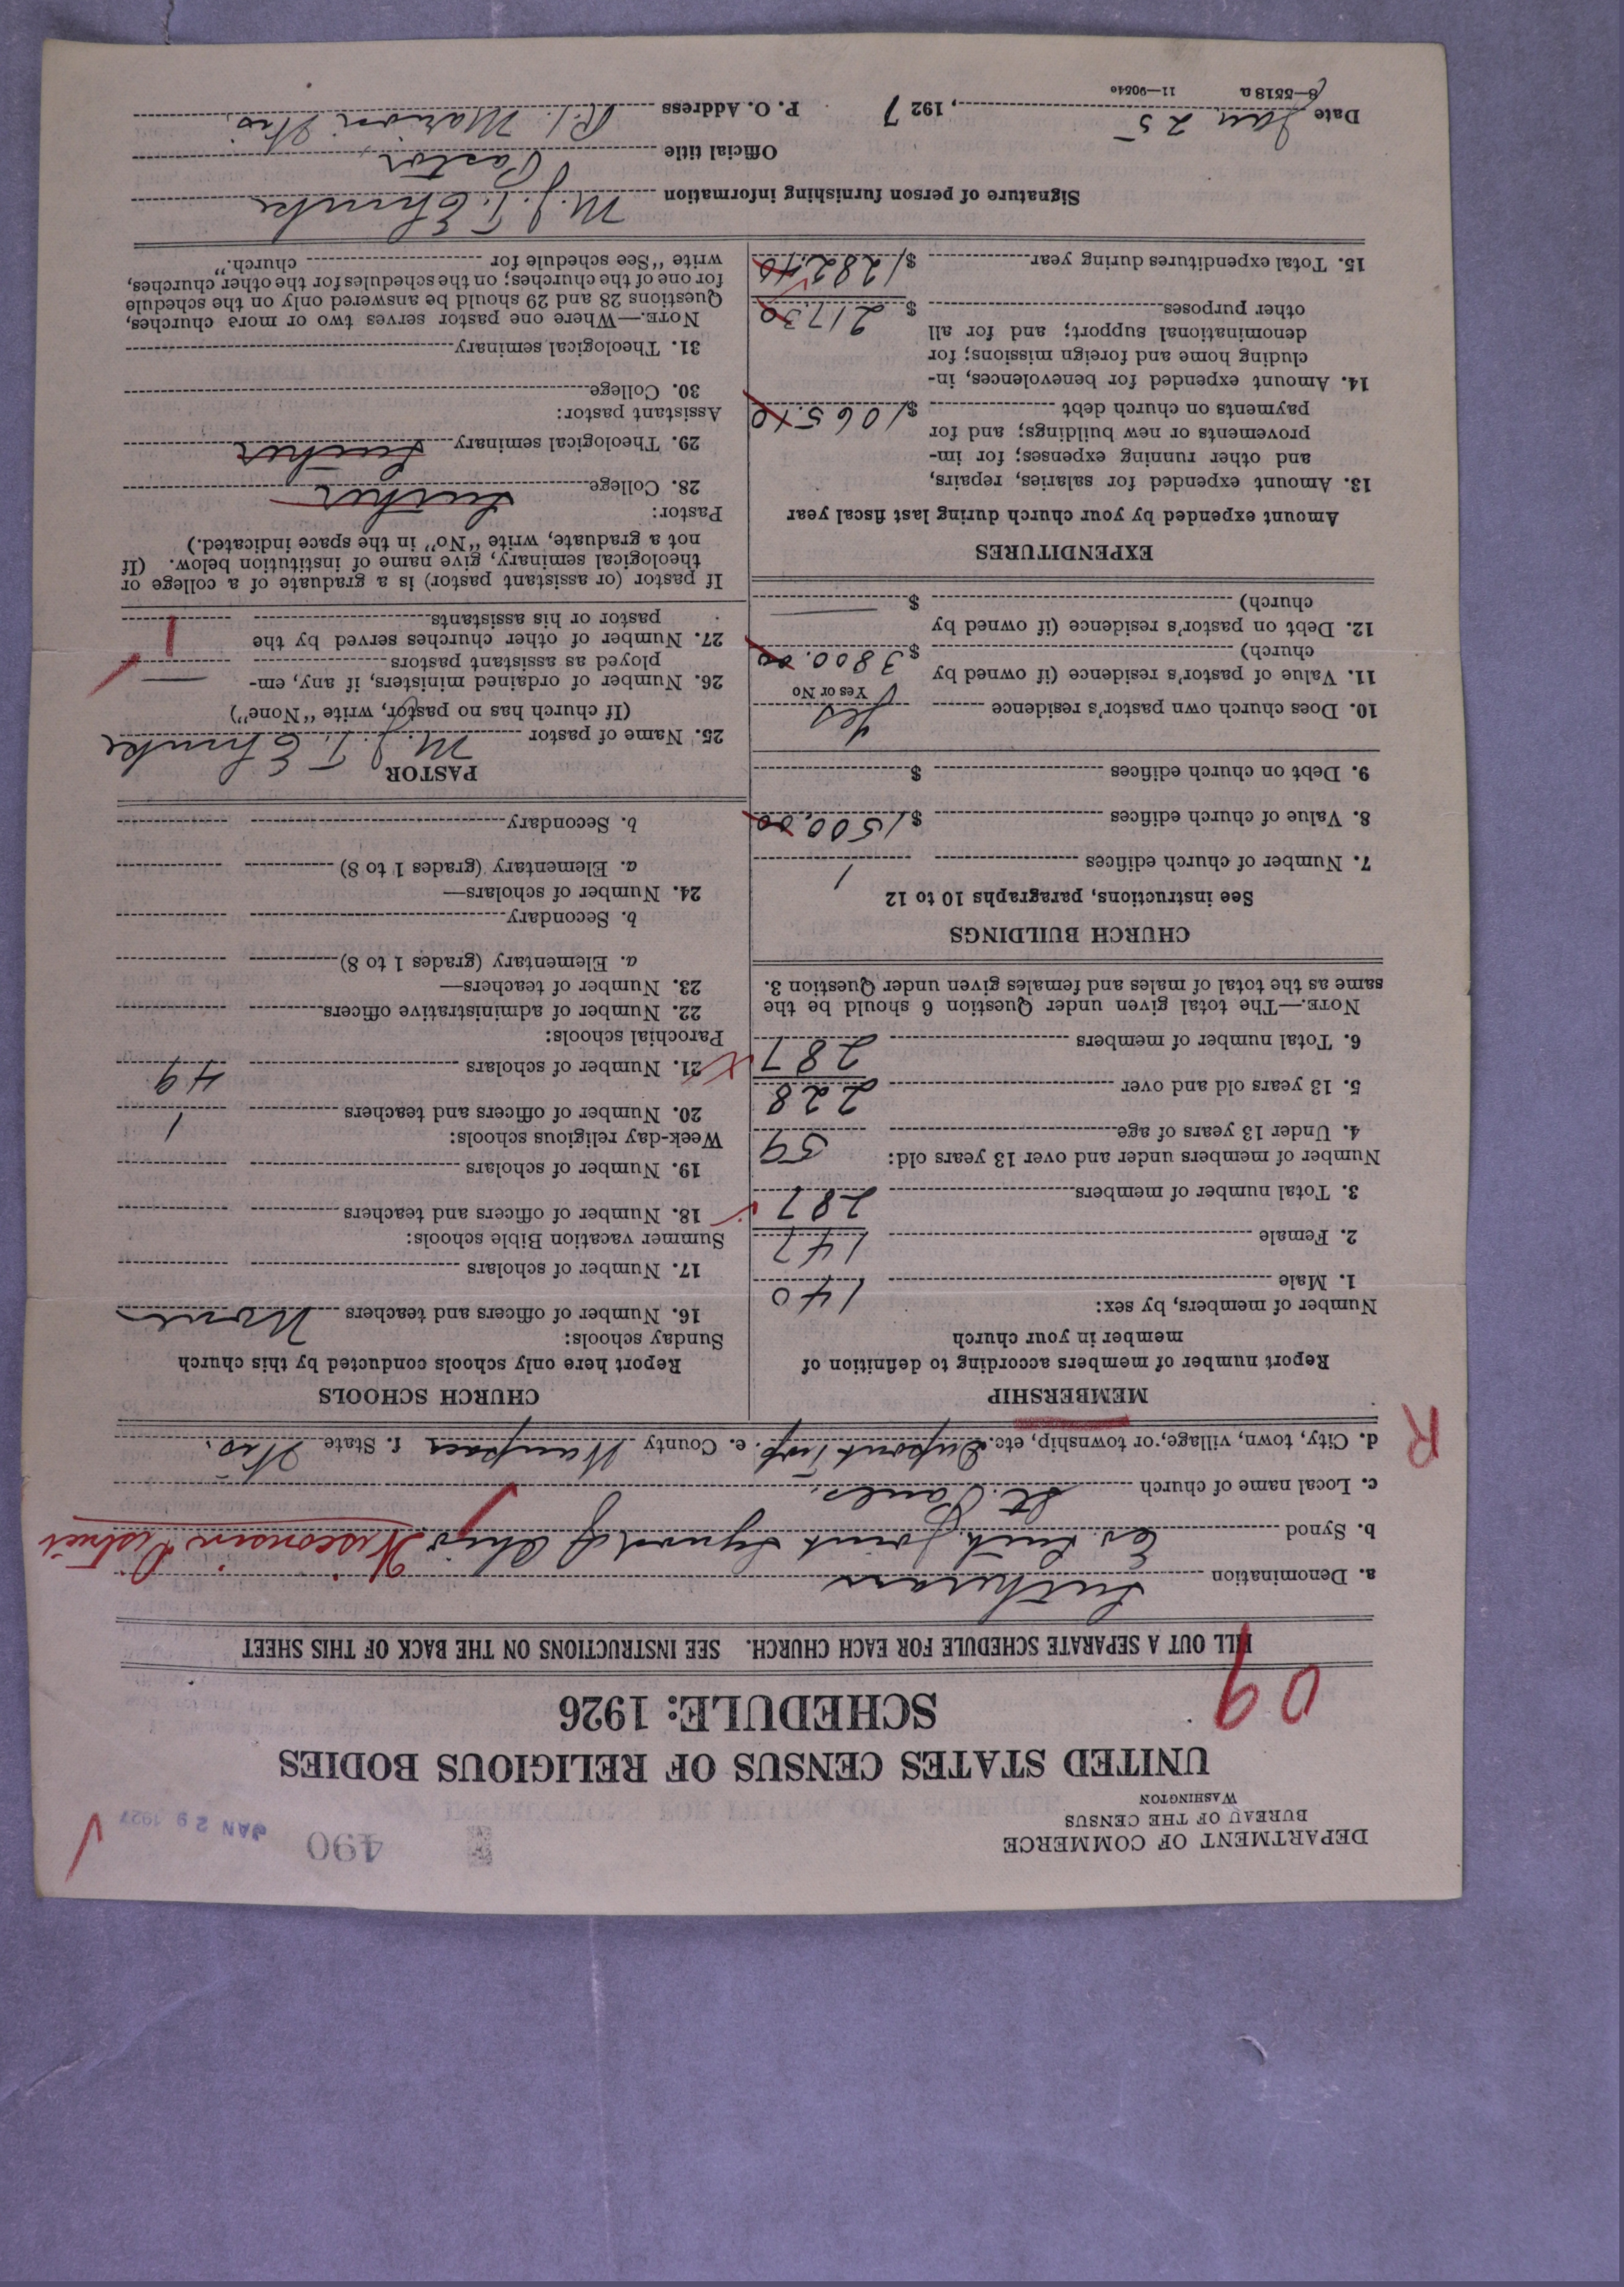 DEPARTMENT OF COMMERCE
BUREAU OF THE CENSUS
WASHINGTON
490
JAN 29 1927
UNITED STATES CENSUS OF RELIGIOUS BODIES
SCHEDULE: 1926
09
FILL OUT A SEPARATE SCHEDULE FOR EACH CHURCH. SEE INSTRUCTIONS ON THE BACK OF THIS SHEET
a. Denomination Lutheran
b. Synod Ev. Luth. Joint Synod of Ohio Wisconsin District
c. Local name of church St. Pauls.
d. City, town, village, or township, etc. Dupont Twp. e. County Waupaca f. State Wis.
R
MEMBERSHIP
Report number of members according to definition of
member in your church
Number of members, by sex:
1. Male 140
2. Female 147
3. Total number of members 287
Number of members under and over 13 years old:
4. Under 13 years of age 59
5. 13 years old and over 228
6. Total number of members 287
NOTE.—The total given under Question 6 should be the
same as the total of males and females given under Question 3.
CHURCH BUILDINGS
See instructions, paragraphs 10 to 12
7. Number of church edifices 1
8. Value of church edifices $1500.00
9. Debt on church edifices $
10. Does church own pastor's residence Yes
Yes or No
11. Value of pastor's residence (if owned by
church) $3800.00
12. Debt on pastor's residence (if owned by
church) $ —
EXPENDITURES
Amount expended by your church during last fiscal year
13. Amount expended for salaries, repairs,
and other running expenses; for im-
provements or new buildings; and for
payments on church debt $1065.10
14. Amount expended for benevolences, in-
cluding home and foreign missions; for
denominational support; and for all
other purposes $217.30
15. Total expenditures during year $1282.40
CHURCH SCHOOLS
Report here only schools conducted by this church
Sunday schools:
16. Number of officers and teachers None
17. Number of scholars
Summer vacation Bible schools:
18. Number of officers and teachers
19. Number of scholars
Week-day religious schools:
20. Number of officers and teachers 1
21. Number of scholars 49
Parochial schools:
22. Number of administrative officers
23. Number of teachers—
a. Elementary (grades 1 to 8)
b. Secondary
24. Number of scholars—
a. Elementary (grades 1 to 8)
b. Secondary
PASTOR
25. Name of pastor M. J. T. Ehmke
(If church has no pastor, write "None")
26. Number of ordained ministers, if any, em-
ployed as assistant pastors —
27. Number of other churches served by the
pastor or his assistants 1
If pastor (or assistant pastor) is a graduate of a college or
theological seminary, give name of institution below. (If
not a graduate, write "No" in the space indicated.)
Pastor:
28. College Luther
29. Theological seminary Luther
Assistant pastor:
30. College
31. Theological seminary
NOTE.—Where one pastor serves two or more churches,
Questions 28 and 29 should be answered only on the schedule
for one of the churches; on the schedules for the other churches,
write "See schedule for church."
Signature of person furnishing information M. J. T. Ehmke
Official title Pastor
Date Jan 25, 1927 P. O. Address R.1. Marion Wis.
8—5518a 11—9051e